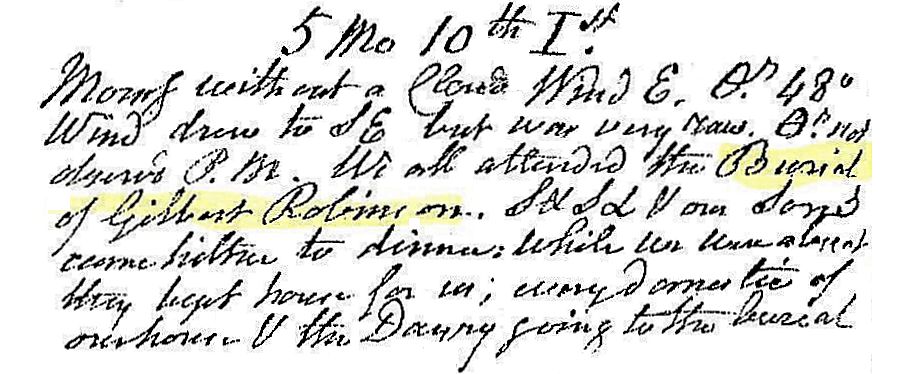 5 Mo 10th I st.
Morng without a Cloud Wind E. Th.r 48°
Wind drew to SE but was very raw. Th.r not
observd P.M. We all attended the Burial
of Gilbert Robinson. S & S L & our Sons
came hither to dinner: while we were absent
they kept house for us; every domestic of
our house & the Dayry going to the burial